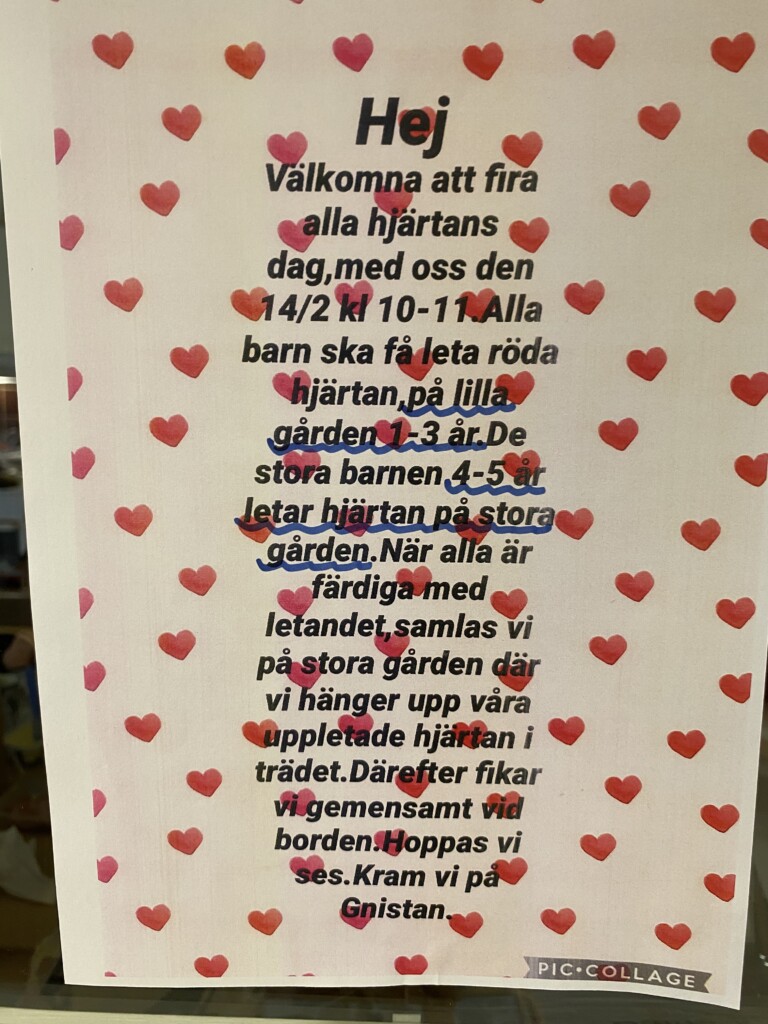 Hej
Välkomna att fira
alla hjärtans
dag,med oss den
14/2 kl 10-11.Alla
barn ska få leta röda
hjärtan,på lilla
gården 1-3 år.De
stora barnen 4-5 år
letar hjärtan på stora
gården.När alla är
färdiga med
letandet,samlas vi
på stora gården där
vi hänger upp våra
uppletade hjärtan i
trädet.Därefter fikar
vi gemensamt vid
borden.Hoppas vi
ses.Kram vi på
Gnistan.
PIC•COLLAGE